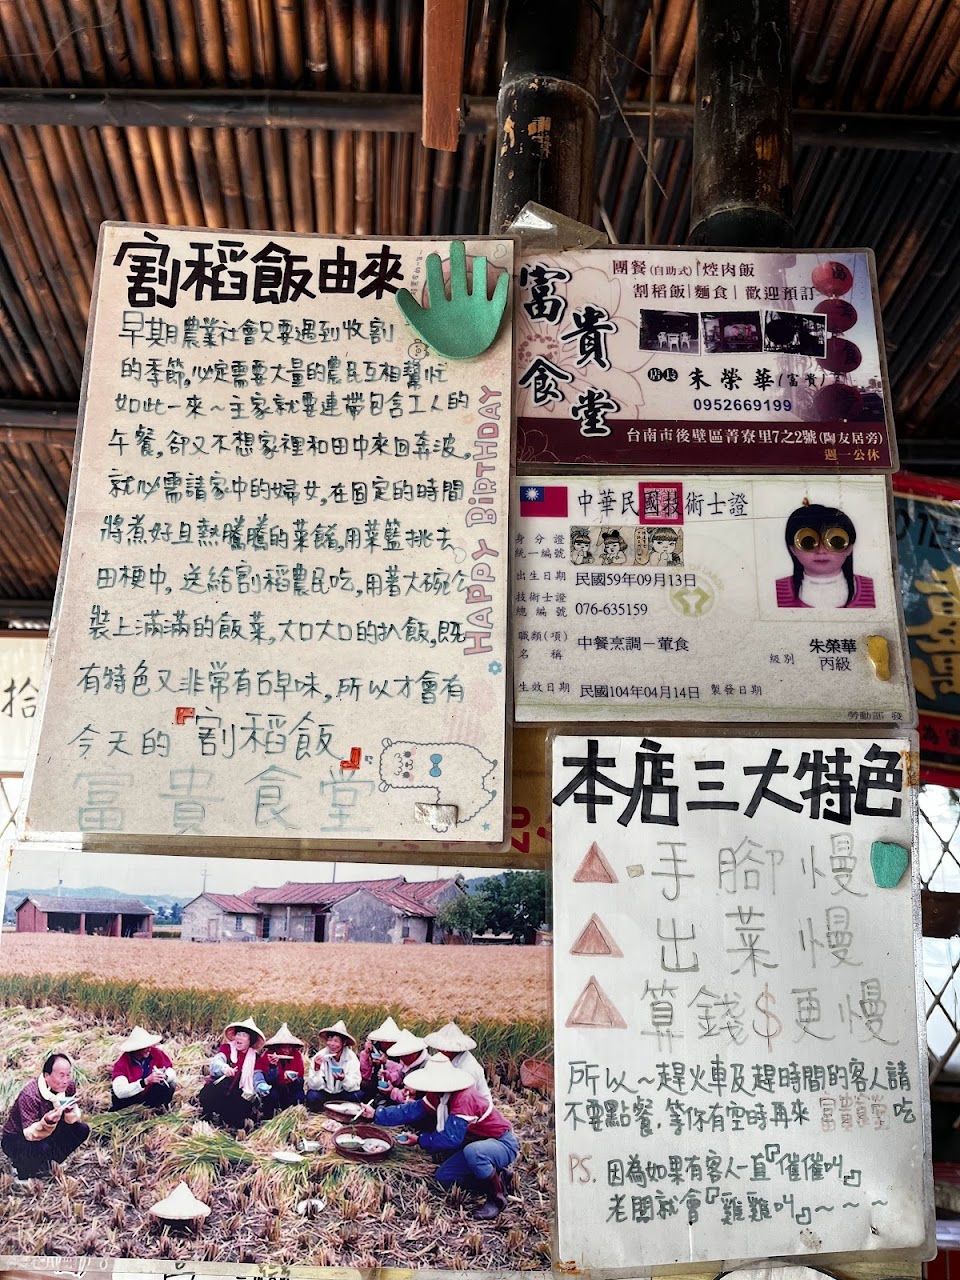 割稻飯由來
早期農業社會只要遇到收割
的季節,必定需要大量的農民互相幫忙
如此一來~主家就要連帶包含工人的
午餐,卻又不想家裡和田中來回奔波,
就必需請家中的婦女,在固定的時間
將煮好且熱騰騰的菜餚,用菜籃挑去
田梗中,送給割稻農民吃,用著大碗公
裝上滿滿的飯菜,大口大口的扒飯,既
有特色又非常有古早味,所以才會有
今天的『割稻飯』
富貴食堂
HAPPY BIRTHDAY
富貴食堂
團餐(自助式)|焢肉飯
割稻飯|麵食|歡迎預訂
店長 朱榮華(富貴)
0952669199
台南市後壁區菁寮里7之2號(陶友居旁)
週一公休
中華民國技術士證
身分證
統一編號
出生日期 民國59年09月13日
技術士證
總編號 076-635159
職類(項)
名稱 中餐烹調－葷食
朱榮華
級別 丙級
生效日期 民國104年04月14日 製發日期
勞動部 發
本店三大特色
手腳慢
出菜慢
算錢$更慢
所以~趕火車及趕時間的客人請
不要點餐,等你有空時再來 富貴食堂 吃
PS. 因為如果有客人一直『催催叫』
老闆就會『雞雞叫』~~~
拾